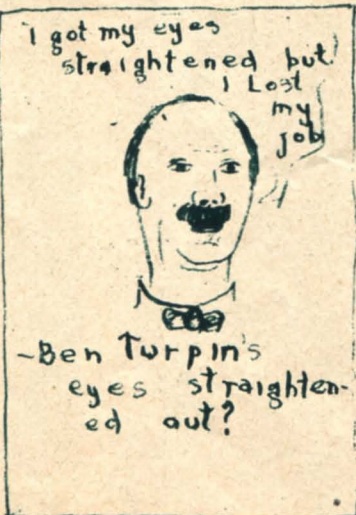 I got my eyes
straightened but
I Lost
my
job
-Ben Turpin's
eyes straighten-
ed out?